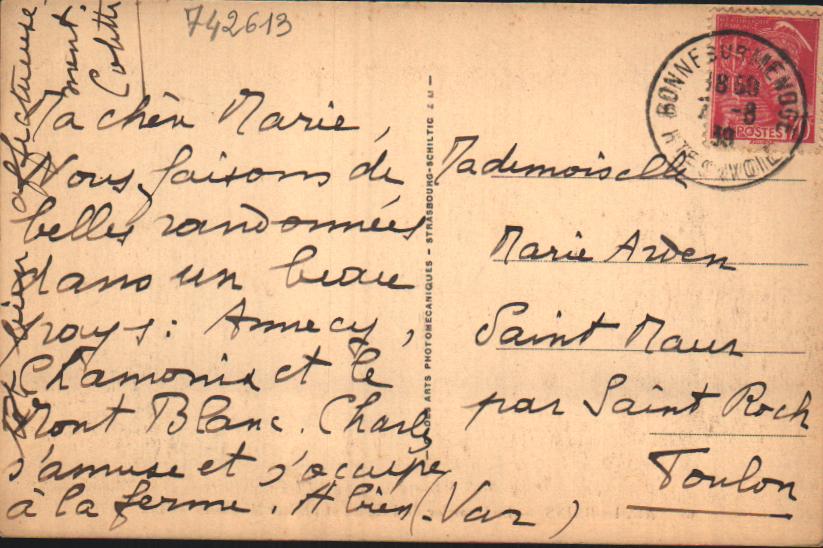 742613
Ma chère Marie,
Nous faisons de
belles randonnées
dans un beau
pays : Annecy,
Chamonix et le
Mont Blanc. Charly
s'amuse et s'occupe
à la ferme. A bien
affectueuse
ment.
IS DES ARTS PHOTOMECANIQUES - STRASBOURG-SCHILTIG
BONNE SUR MENOGE
18 50
-8
39
HTE SAVOIE
POSTES
Mademoiselle
Marie Arden
Saint Maur
par Saint Roch
Toulon
(Var)